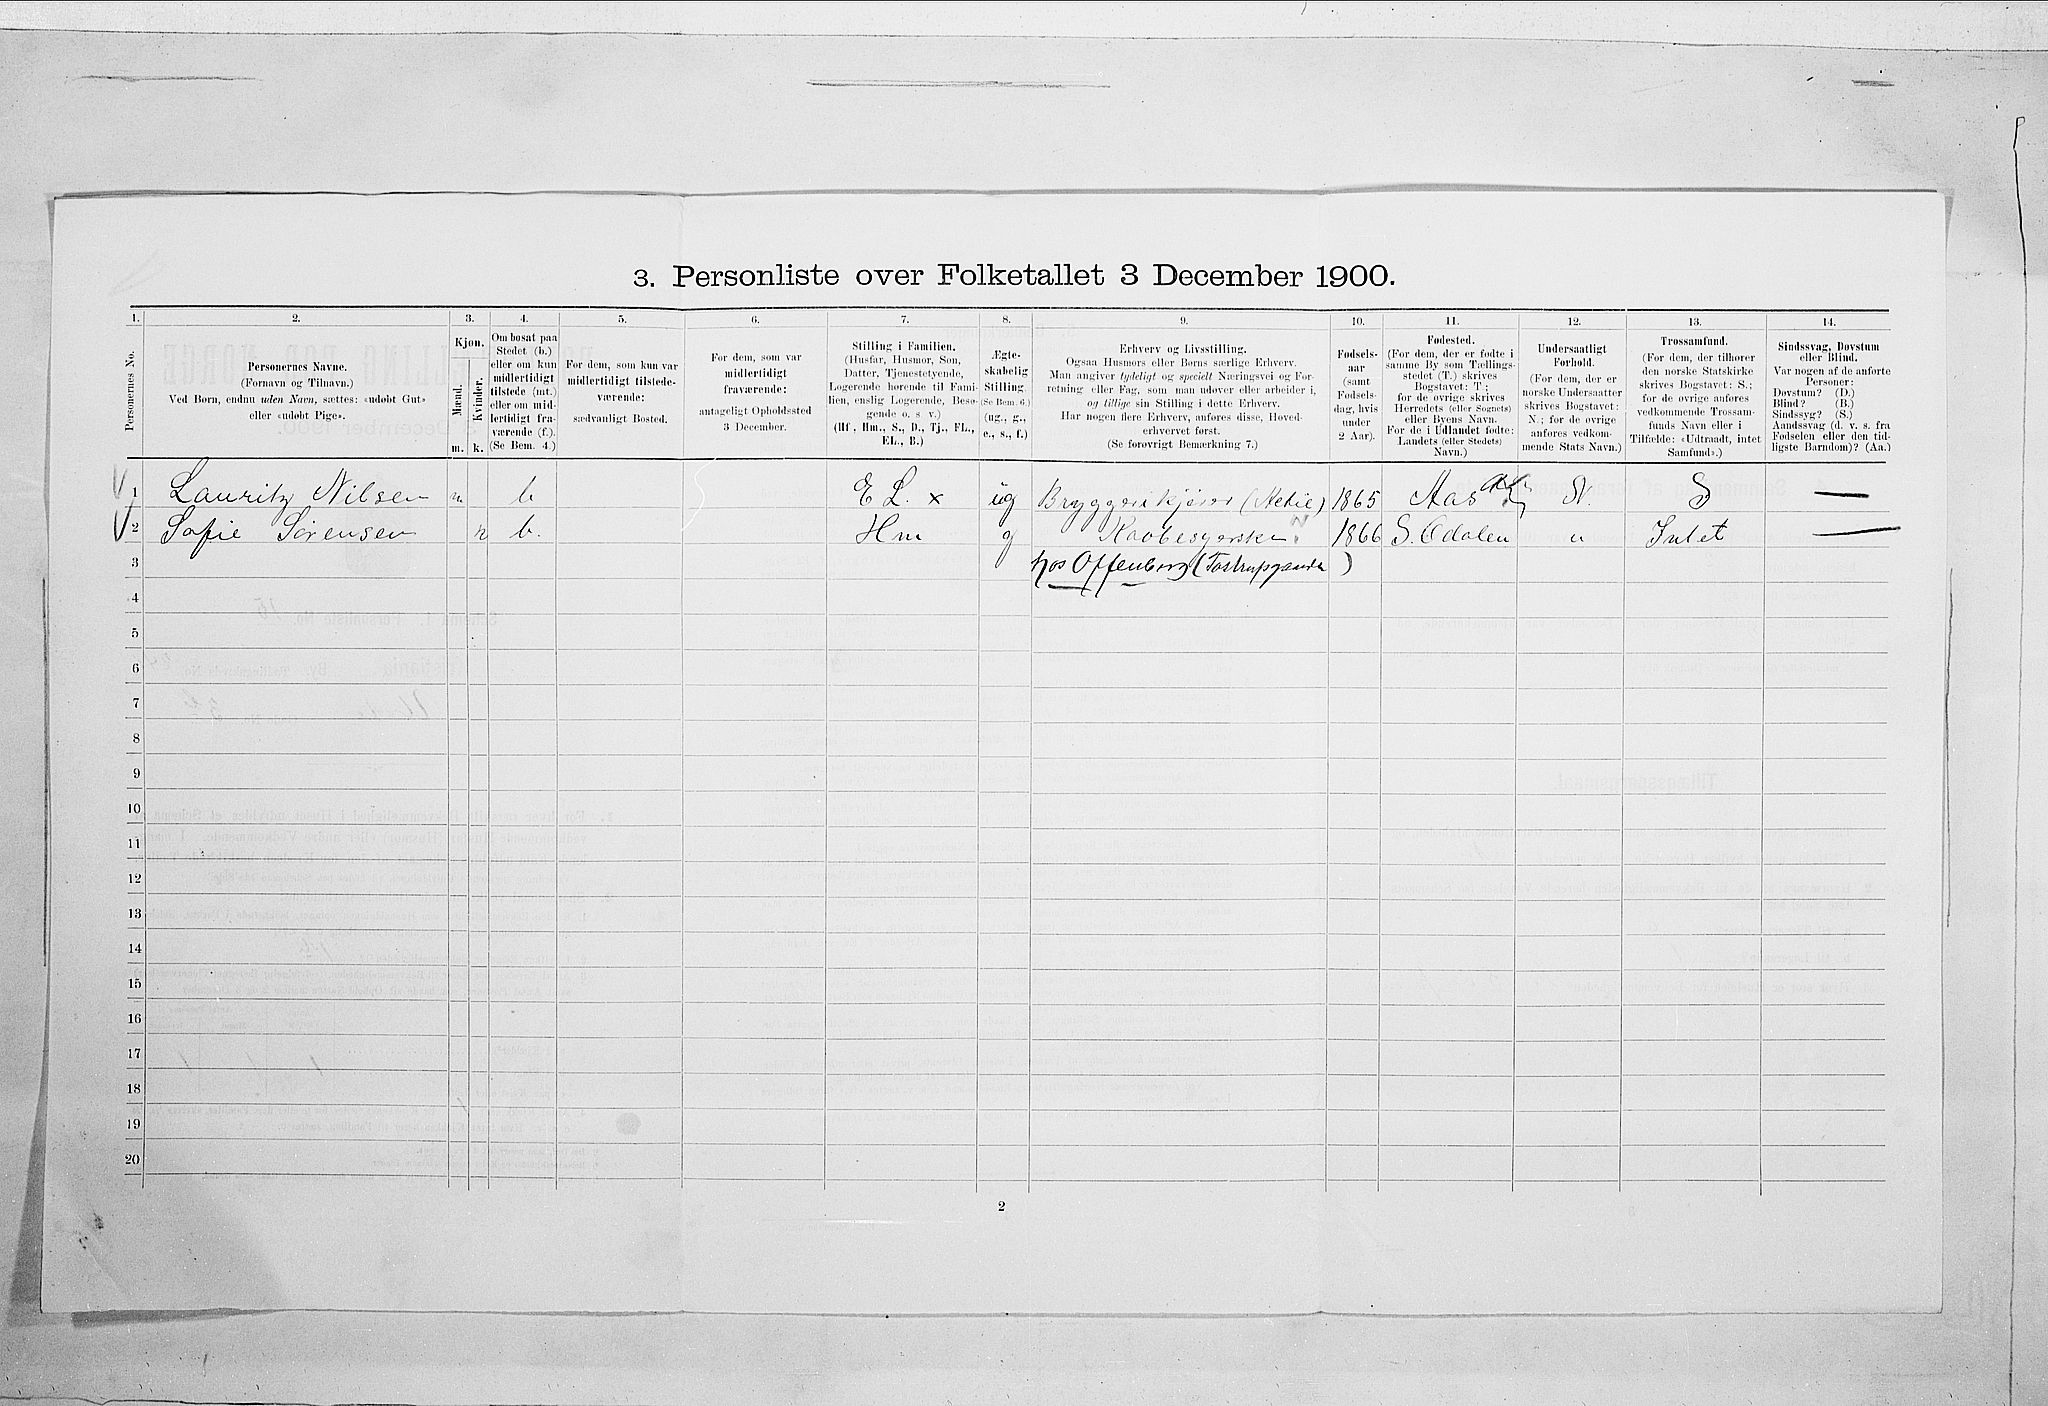 3. Personliste over Folketallet 3 December 1900.
1. 2. 3. 4. 5. 6. 7. 8. 9. 10. 11. 12. 13. 14.
Personernes No.
Personernes Navne.
(Fornavn og Tilnavn.)
Ved Børn, endnu uden Navn, sættes: «udøbt Gut»
eller «udøbt Pige».
Kjøn.
Mænd.
Kvinder.
m. k.
Om bosat paa
Stedet (b.)
eller om kun
midlertidigt
tilstede (mt.)
eller om mid-
lertidigt fra-
værende (f.).
(Se Bem. 4.)
For dem, som kun var
midlertidigt tilstede-
værende:
sædvanligt Bosted.
For dem, som var
midlertidigt
fraværende:
antageligt Opholdssted
3 December.
Stilling i Familien.
(Husfar, Husmor, Søn,
Datter, Tjenestetyende,
Logerende hørende til Fami-
lien, enslig Logerende, Besø-
gende o. s. v.)
(Hf., Hm., S., D., Tj., FL.,
EL., B.)
Ægte-
skabelig
Stilling.
(Se Bem. 6.)
(ug., g.,
e., s., f.)
Erhverv og Livsstilling.
Ogsaa Husmors eller Børns særlige Erhverv.
Man angiver tydeligt og specielt Næringsvei og For-
retning eller Fag, som man udøver eller arbeider i,
og tillige sin Stilling i dette Erhverv.
Har nogen flere Erhverv, anføres disse, Hoved-
erhvervet først.
(Se forøvrigt Bemærkning 7.)
Fødsels-
aar
(samt
Fødsels-
dag, hvis
under
2 Aar).
Fødested.
(For dem, der er fødte i
samme By som Tællings-
stedet (T.) skrives
Bogstavet: T.;
for de øvrige skrives
Herredets (eller Sognets)
eller Byens Navn.
For de i Udlandet fødte:
Landets (eller Stedets)
Navn.)
Undersaatligt
Forhold.
(For dem, der er
norske Undersaatter
skrives Bogstavet:
N.; for de øvrige
anføres vedkom-
mende Stats Navn.)
Trossamfund.
(For dem, der tilhører
den norske Statskirke
skrives Bogstavet: S.;
for de øvrige anføres
vedkommende Trossam-
funds Navn eller i
Tilfælde: «Udtraadt, intet
Samfund».)
Sindssvag, Døvstum
eller Blind.
Var nogen af de anførte
Personer:
Døvstum? (D.)
Blind? (B.)
Sindssyg? (S.)
Aandssvag (d. v. s. fra
Fødselen eller den tid-
ligste Barndom)? (Aa.)
1 Lauritz Nilsen m b E L. x ug Bryggerikjører (Aktie) 1865 Aas N. S —
2 Sofie Sørensen k b. Hm g Kaabesyerske 1866 S. Odalen " Intet —
3 hos Offenberg ( )
4
5
6
7
8
9
10
11
12
13
14
15
16
17
18
19
20
2